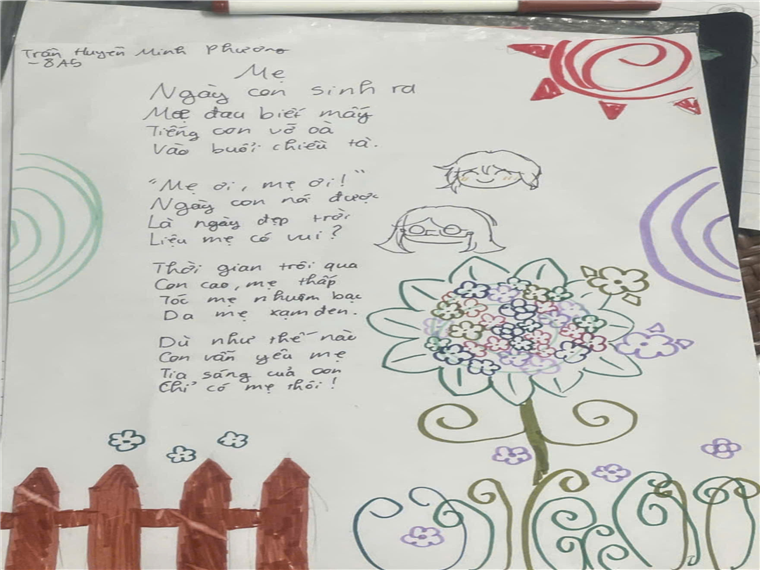 Trần Huyền Minh Phương
- 8A5
Mẹ
Ngày con sinh ra
Mẹ đau biết mấy
Tiếng con vỡ oà
Vào buổi chiều tà.
"Mẹ ơi, mẹ ơi!"
Ngày con nói được
Là ngày đẹp trời
Liệu mẹ có vui?
Thời gian trôi qua
Con cao, mẹ thấp
Tóc mẹ nhuộm bạc
Da mẹ xạm đen.
Dù như thế nào
Con vẫn yêu mẹ
Tia sáng của con
Chỉ có mẹ thôi!